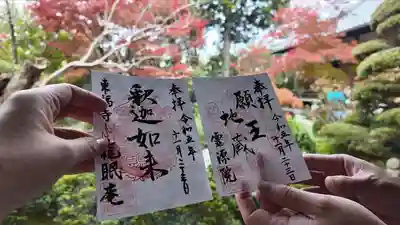 奉拝
令和五年
十一月二十三日
釈迦如来
東福寺
龍眠庵
奉拝
令和五年
十一月二十三日
願王
地蔵
霊源院